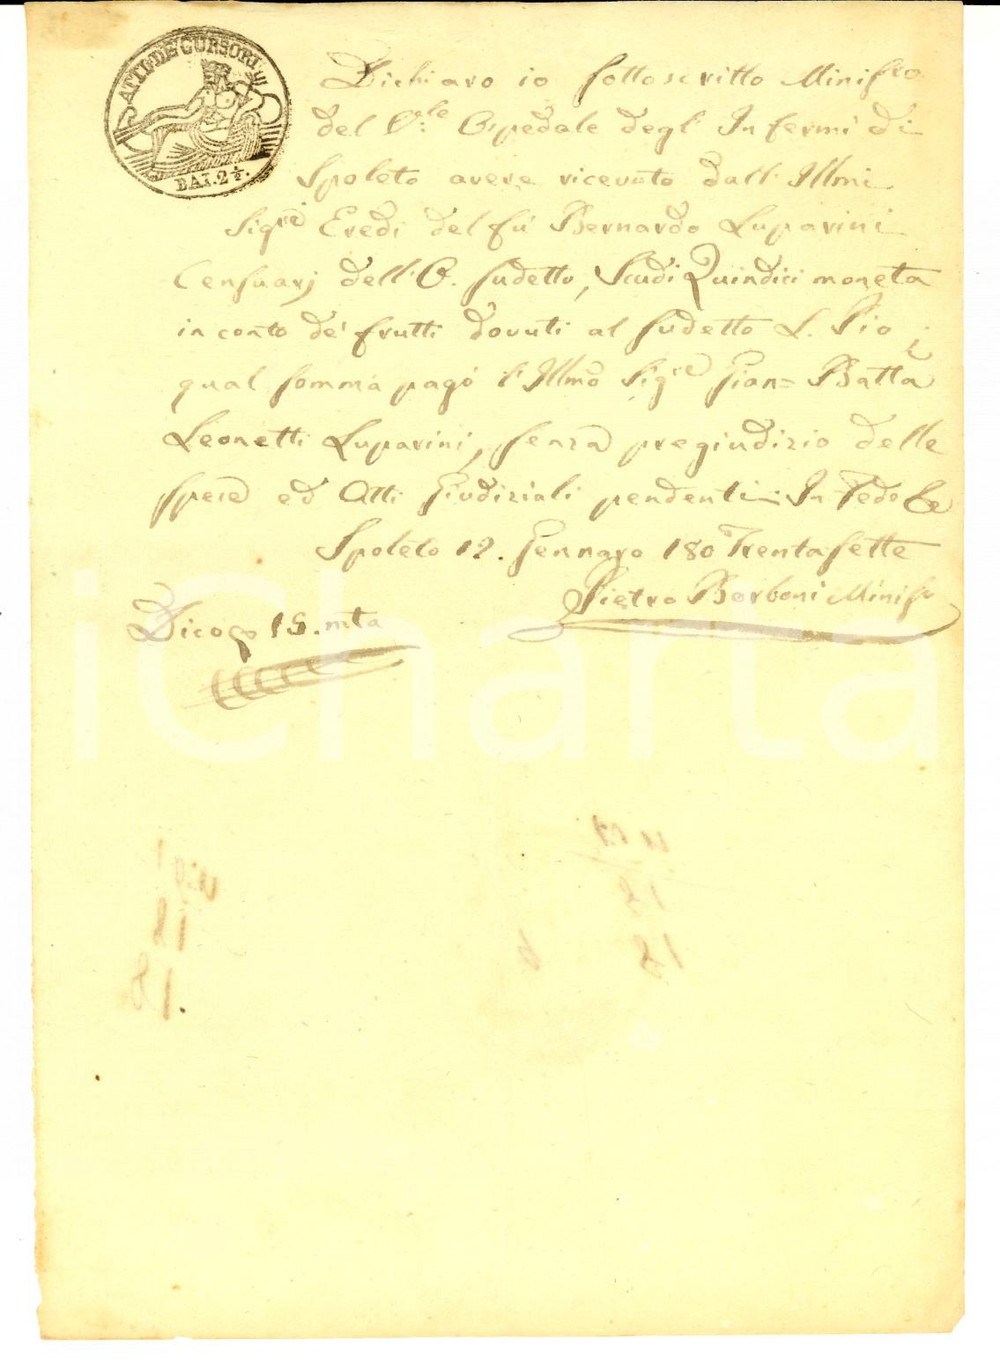 ATTI DE' CURSORI
BAI. 2½.
Dichiaro io sottoscritto Ministro
del V:le Ospedale degl' Infermi di
Spoleto avere ricevuto dall' Illmi
Sigri Eredi del fù Bernardo Luparini
Censuarj dell' O. sudetto, Scudi Quindici moneta
in conto de' frutti dovuti al sudetto L. Pio;
qual somma pagò l'Illmo Sigre Gian= Batta
Leonetti Luparini, senza pregiudizio delle
spese ed Atti Giudiziali pendenti =: In Fede &
Spoleto 12. Gennaro 180 Trentasette
Pietro Borboni Ministro
Dico 15. mta
iCharta
18
18